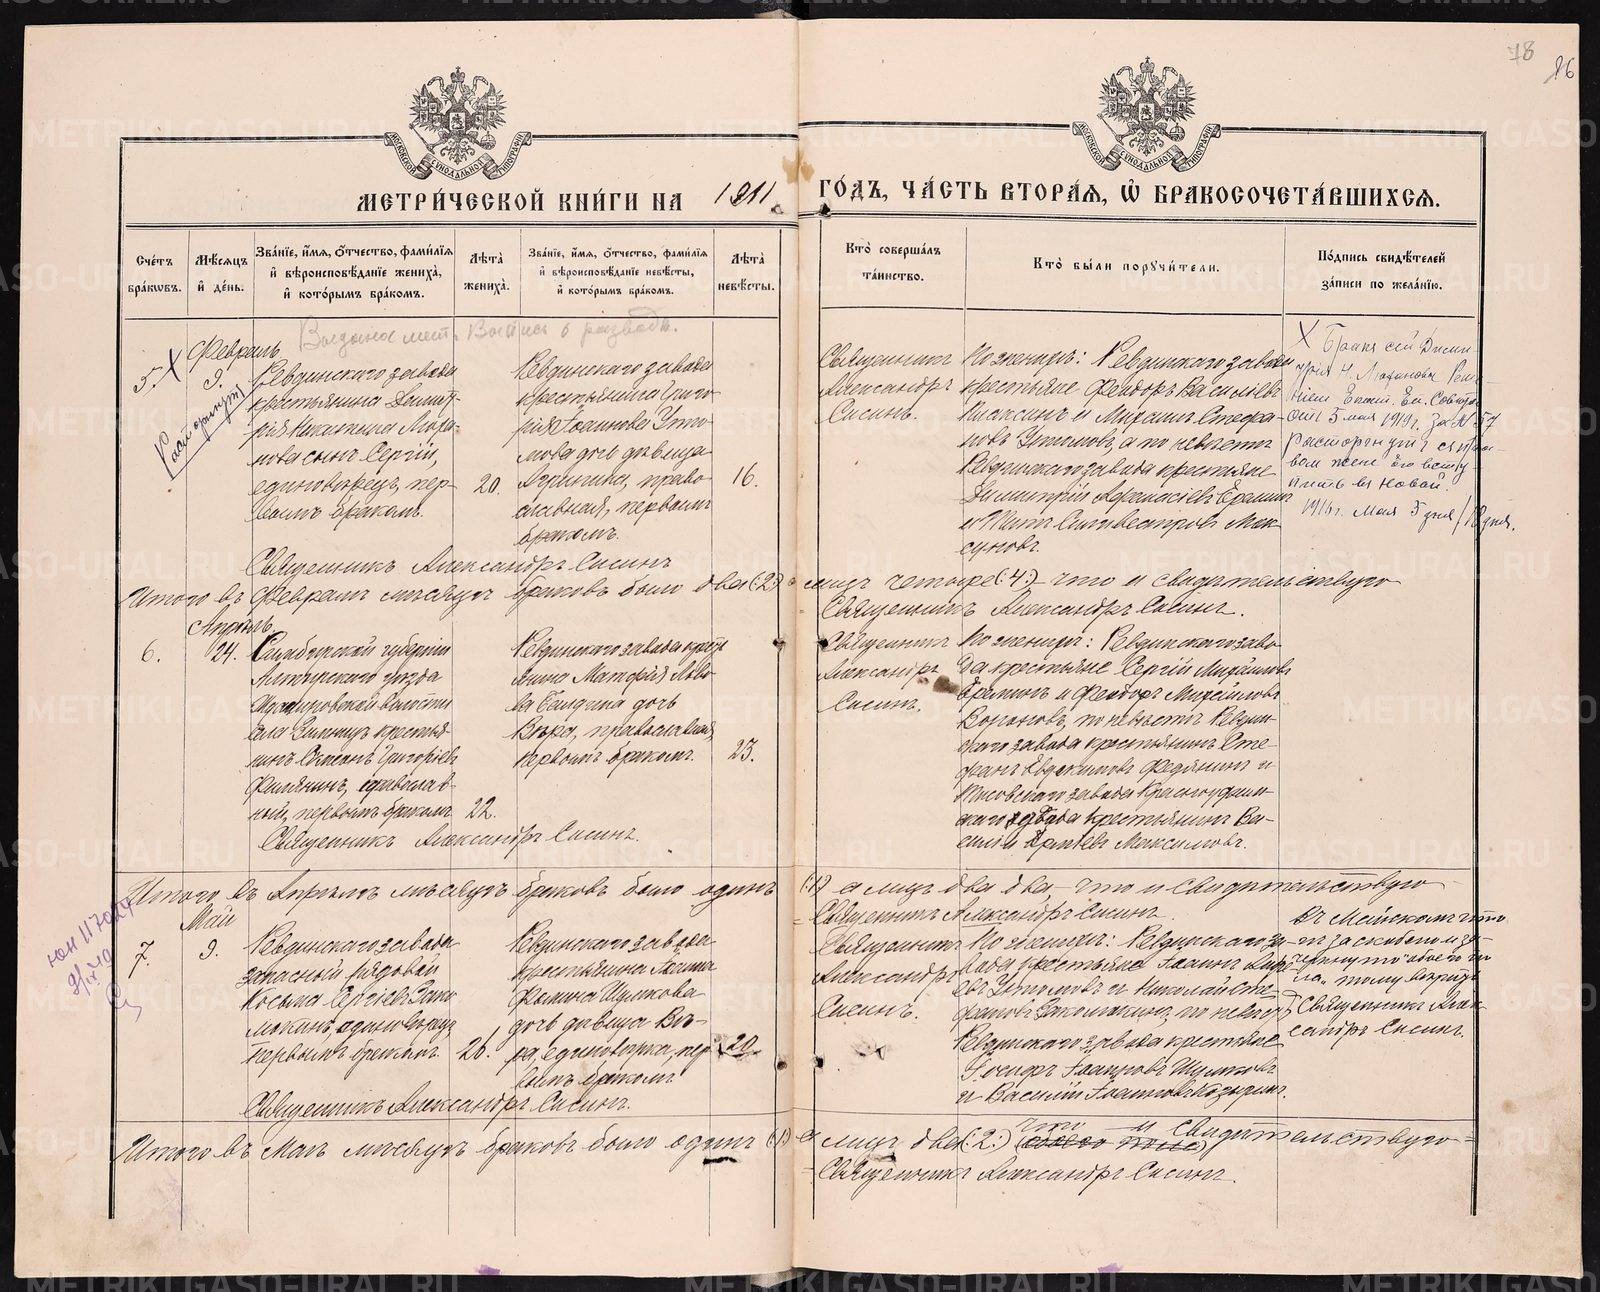 78
86
МЕТРИ́ЧЕСКОЙ КНИ́ГИ НА 1911 ГО́ДЪ, ЧА́СТЬ ВТОРА́Я, Ѡ҆ БРАКОСОЧЕТА́ВШИХСЯ.
Сче́тъ бра́кѡвъ.
Мѣ́сяцъ и҆ де́нь.
Зва́нїе, и҆́мя, ѻ҆́тчество, фами́лїя и҆ вѣроисповѣ́данїе жениха̀, и҆ кото́рымъ бра́комъ.
Лѣ́та жениха̀.
Зва́нїе, и҆́мя, ѻ҆́тчество, фами́лїя и҆ вѣроисповѣ́данїе невѣ́сты, и҆ кото́рымъ бра́комъ.
Лѣ́та невѣ́сты.
Кто̀ соверша́лъ та́инство.
Кто̀ бы́ли порꙋчи́тели.
По́дпись свидѣ́телей за́писи по жела́нїю.
Выдана мет. Выпись о разводѣ.
Февраль
5.
9.
Расторгнутъ
Ревдинскаго завода
крестьянина Димит-
рія Никитина Моха-
нова сынъ Сергій,
единовѣрецъ, пер-
вымъ бракомъ.
20.
Ревдинскаго завода
крестьянина Григо-
рія Іоаннова Уто-
мова дочь дѣвица
право-
славная, первымъ
бракомъ.
16.
Священникъ
Александръ
Сисинъ.
По женихѣ: Ревдинскаго завода
крестьяне Феодоръ Васильевъ
и Михаилъ Стефа-
новъ Утюмовъ, а по невѣстѣ
Ревдинскаго завода крестьяне
Димитрій Афанасіевъ Еремин
и Титъ Силивестровъ Мак-
суновъ.
Бракъ сей Дими-
Еп. Совѣта
отъ 5 мая 1919г. за № 57
расторгнутъ съ пра-
вомъ жене его всту-
пить въ новый.
1919 г. Мая 5 дня / 18 дня.
Священникъ Александръ Сисинъ
Итого въ Февралѣ мѣсяцѣ браковъ было два (:2:) а лицъ четыре (:4:) что и свидѣтельствую
Священникъ Александръ Сисинъ.
Апрѣль
6.
24.
Симбирской губерніи
Алатырскаго уѣзда
волости
села крестья-
нинъ Симеонъ Григорьевъ
православ-
ный, первымъ бракомъ
22.
Ревдинскаго завода крест-
янина Матфія
дочь
Вѣра, православная,
первымъ бракомъ.
23.
Священникъ
Александръ
Сисинъ.
По женихѣ: Ревдинскаго заво-
да крестьяне Сергій Михайловъ
Ереминъ и Феодоръ Михайловъ
Вороновъ, по невѣстѣ Ревдин-
скаго завода крестьянинъ Сте-
фанъ Евдокимовъ Федянинъ и
завода Красноуфим-
скаго уѣзда крестьянинъ Ва-
силій Максимовъ.
Священникъ Александръ Сисинъ.
Итого въ Апрѣлѣ мѣсяцѣ браковъ было одинъ (:1:) а лицъ два, что и свидѣтельствую
Священникъ Александръ Сисинъ.
Май
7.
9.
Ревдинскаго завода
запасный рядовой
Косьма Сергіевъ Зако-
малкинъ, единовѣрецъ,
первымъ бракомъ.
26.
Ревдинскаго завода
крестьянина Іоанна
Фомина Шумкова
дочь дѣвица Вѣ-
ра, единовѣрка, пер-
вымъ бракомъ
20.
Священникъ
Александръ
Сисинъ.
По женихѣ: Ревдинскаго за-
вода крестьяне Іоаннъ
Утюмовъ и Николай Сте-
фановъ Закомалкинъ, по невѣстѣ
Ревдинскаго завода крестьяне
Іосифъ Іоанновъ Шумковъ
и Василій Іоанновъ Козыринъ.
Въ Майскомъ ито-
гѣ за скобками за-
черкнуто
тому вѣрить
Священникъ Алек-
сандръ Сисинъ.
Священникъ Александръ Сисинъ.
Итого въ Маѣ мѣсяцѣ браковъ было одинъ (:1:) а лицъ два (:2:) что и свидѣтельствую
Священникъ Александръ Сисинъ.